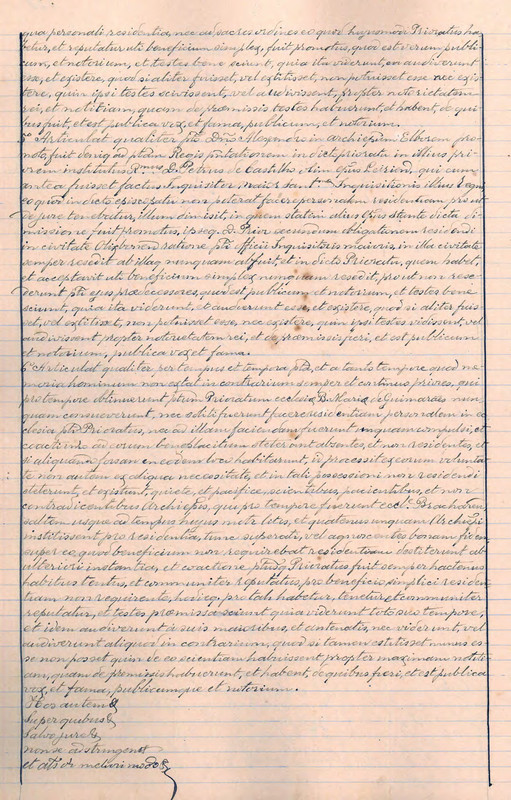 gura personali residentia, nec ad sacros ordines eo quod hujusmodi Prioratus ha
betur, et reputatur uti beneficium simplex, fuit promotus, quod est verum publi
cum, et notorium, et testes bene sciunt, quia ita viderunt, ea audiverunt
esse, et existere, quod si aliter fuisset, vel extitisset, non potuisset esse nec exis
tere, quin ipsi testes scivissent, vel audivissent, propter notorietatem
rei, et notitiam, quam de præmissis testes habuerunt, et habent, de qui
bus fuit, et est publica vox, et fama, publicum, et notorium.
5º Articulat qualiter pto Dno Alexandro in archiepum Elboren pro
moto, fuit deniq ad ptam Regis pntationem in dicto prioratu in illius pri
orem institutus D. Petrus de Castilho olim Epus Leirien, qui cum
antea fuisset factus Inquisitor maior Sant Inquisitionis illius regni
eo quod in dicto episcopatu non poterat facere personalem residentiam, prout
de jure tenebatur, illum dimisit, in quem statim alius Epus stante dicta di
missione fuit promotus, ipseq. D. Prior secundum obligationem residendi
in civitate Olixbonen ratione pti Officii Inquisitoris maioris, in illa civitate
semper resedit ab illaq nunquam abfuit, et in dicto Prioratu, quem habet,
et acceptavit uti beneficium simplex nunquam resedit, prout non rese
derunt pti ejus prædecessores, quod est publicum et notorium, et testes bene
sciunt, quia ita viderunt, et audiverunt esse, et existere, quod si aliter fuis
set, vel extitisset, non potuisset esse, nec existere, quin ipsi testes vidissent, vel
audivissent, propter notorietatem rei, et de præmissis fuit, et est publicum
et notorium, publica vox et fama.
6º Articulat qualiter per tempus et tempora pta, et a tanto tempore quod me
moria hominum non extat in contrarium semper et continuo priores, qui
pro tempore obtinuerunt ptum Prioratum ecclesiæ B. Mariæ de Guimaraes nun
quam consueverunt, nec soliti fuerunt facere residentiam personalem in ec
clesia pti Prioratus, nec ad illam faciendam fuerunt unquam compulsi, et
coacti imo ad eorum beneplacitum steterunt absentes, et non residentes, et
si aliquam forsan in eodem loco habitarunt, id processit ex eorum volunta
te non autem ex aliqua necessitate, et in tali possessioni non residendi
steterunt, et existunt, quiete, et pacifice, scientibus, pacientibus, et non
contradicentibus Archiepis, qui pro tempore fuerunt Bracharen
saltem usque ad tempus hujus motæ litis, et quatenus unquam Archiepi
institissent pro residentia, tunc suborati, vel agnoscentes bonam fidem
super eo, quod beneficium non requirebat residentiam destiterunt ab
ulteriori instantia, et coactione, ptusq Prioratus fuit semper hactenus
habitus tentus, et communiter reputatus, pro beneficio simplici residen
tiam non requirente, hodieq. pro tali habetur, tenetur et communiter
reputatur, et testes promissa sciunt quia viderunt toto suo tempore,
et idem audiverunt à suis maioribus, et antenatis, nec viderunt, vel
audiverunt aliquid in contrarium, quod si tamen extitisset minus es
se non posset quin de eo scientiam habuissent propter maximam notiti
am, quam de premissis habuerunt, et habent, de quibus fuit, et est publica
vox, et fama, publicumque et notorium.
Hos autem &
Super quibus &
Salvo jure &
non se adstringens &
et ati di meliori modo &